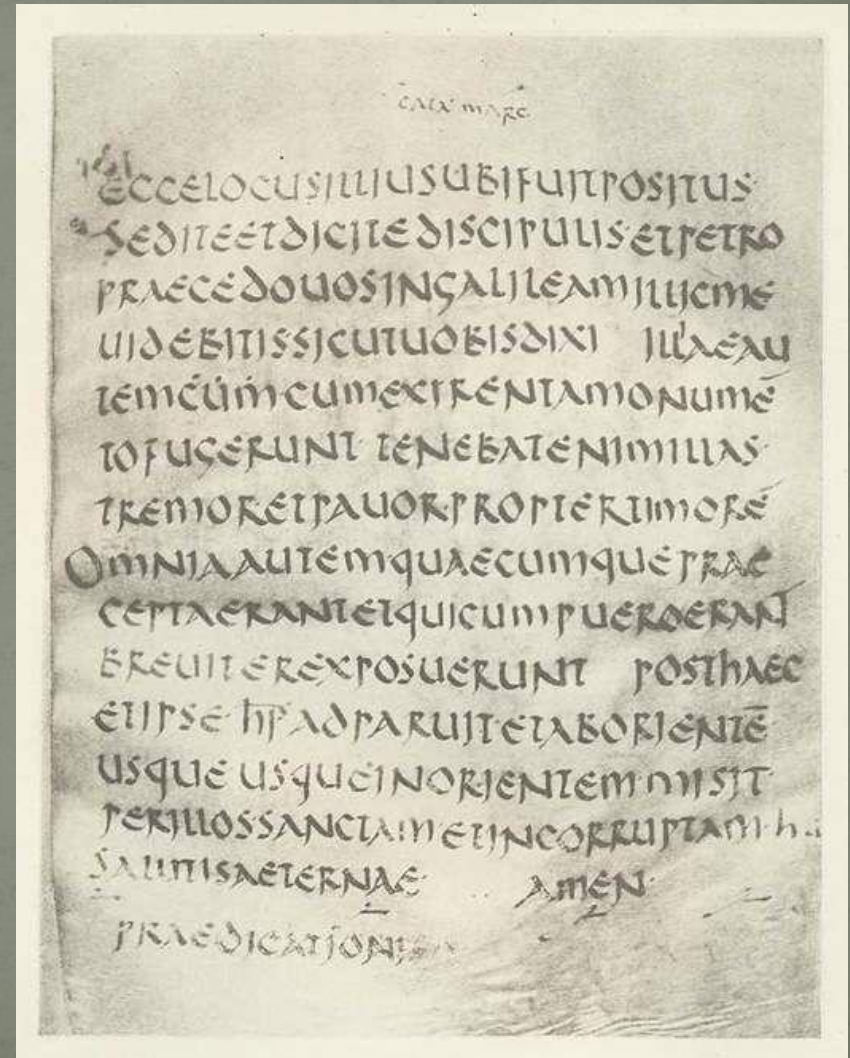 CATA MARC
ECCE LOCUS ILLIUS UBI FUIT POSITUS
SED ITE ET DICITE DISCIPULIS ET PETRO
PRAECEDO UOS IN GALILEAM ILLIC ME
UIDEBITIS SICUT UOBIS DIXI ILLAE AU
TEM CUM CUM EXIRENT A MONUMĒ
TO FUGERUNT TENEBAT ENIM ILLAS
TREMOR ET PAUOR PROPTER TIMORĒ
OMNIA AUTEM QUAECUMQUE PRAE
CEPTA ERANT ET QUI CUM PUERO ERANT
BREUITER EXPOSUERUNT POST HAEC
ET IPSE HP ADPARUIT ET AB ORIENTĒ
USQUE USQUE IN ORIENTEM MISIT
PER ILLOS SANCTAM ET INCORRUPTAM
SALUTIS AETERNAE AMEN
PRAEDICATIONIS